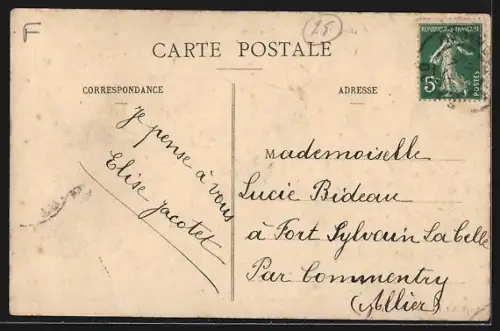 F
25
CARTE POSTALE
REPUBLIQUE FRANÇAISE
5c
POSTES
CORRESPONDANCE
ADRESSE
Je pense à vous
Elise Jacotet
Mademoiselle
Lucie Bideau
à Fort Sylvain La Celle
Par Commentry
(Allier)